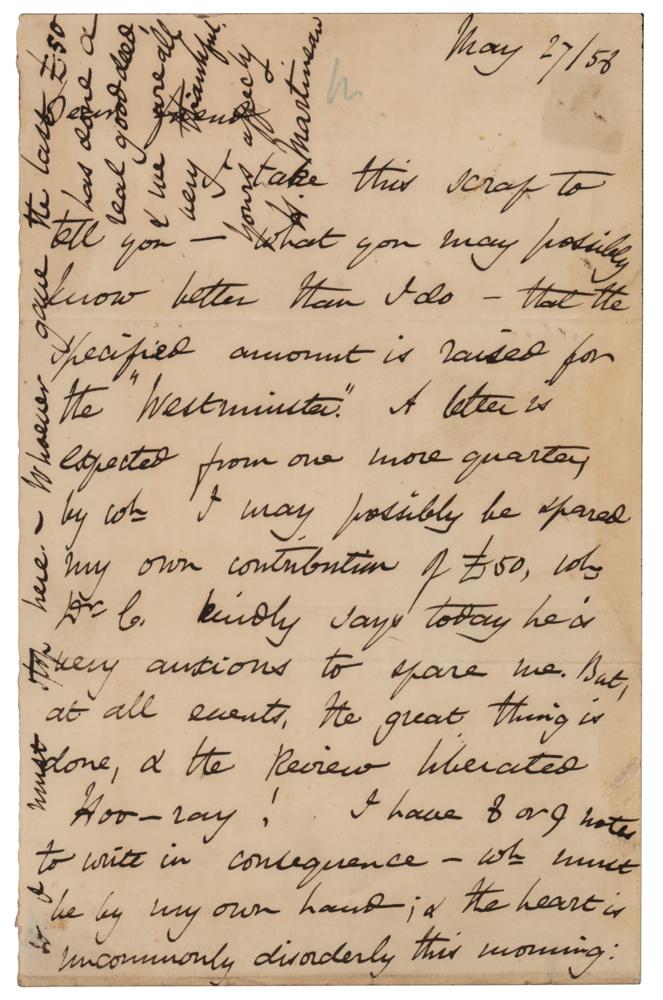 May 27/58
Dear Friend
I take this scrap to
tell you — what you may possibly
know better than I do — that the
specified amount is raised for
the "Westminster." A letter is
expected from one more quarter,
by wh I may possibly be spared
my own contribution of £50, wh
Dr C. kindly says today he is
very anxious to spare me. But,
at all events, the great thing is
done, & the Review liberated
Hoo-ray! I have 8 or 9 notes
to write in consequence — wh must
be by my own hand; & the heart is
uncommonly disorderly this morning:
so I must stop here. — Whoever gave the last £50
has done a
real good deed
& we are all
very thankful.
Yours affecly
H. Martineau